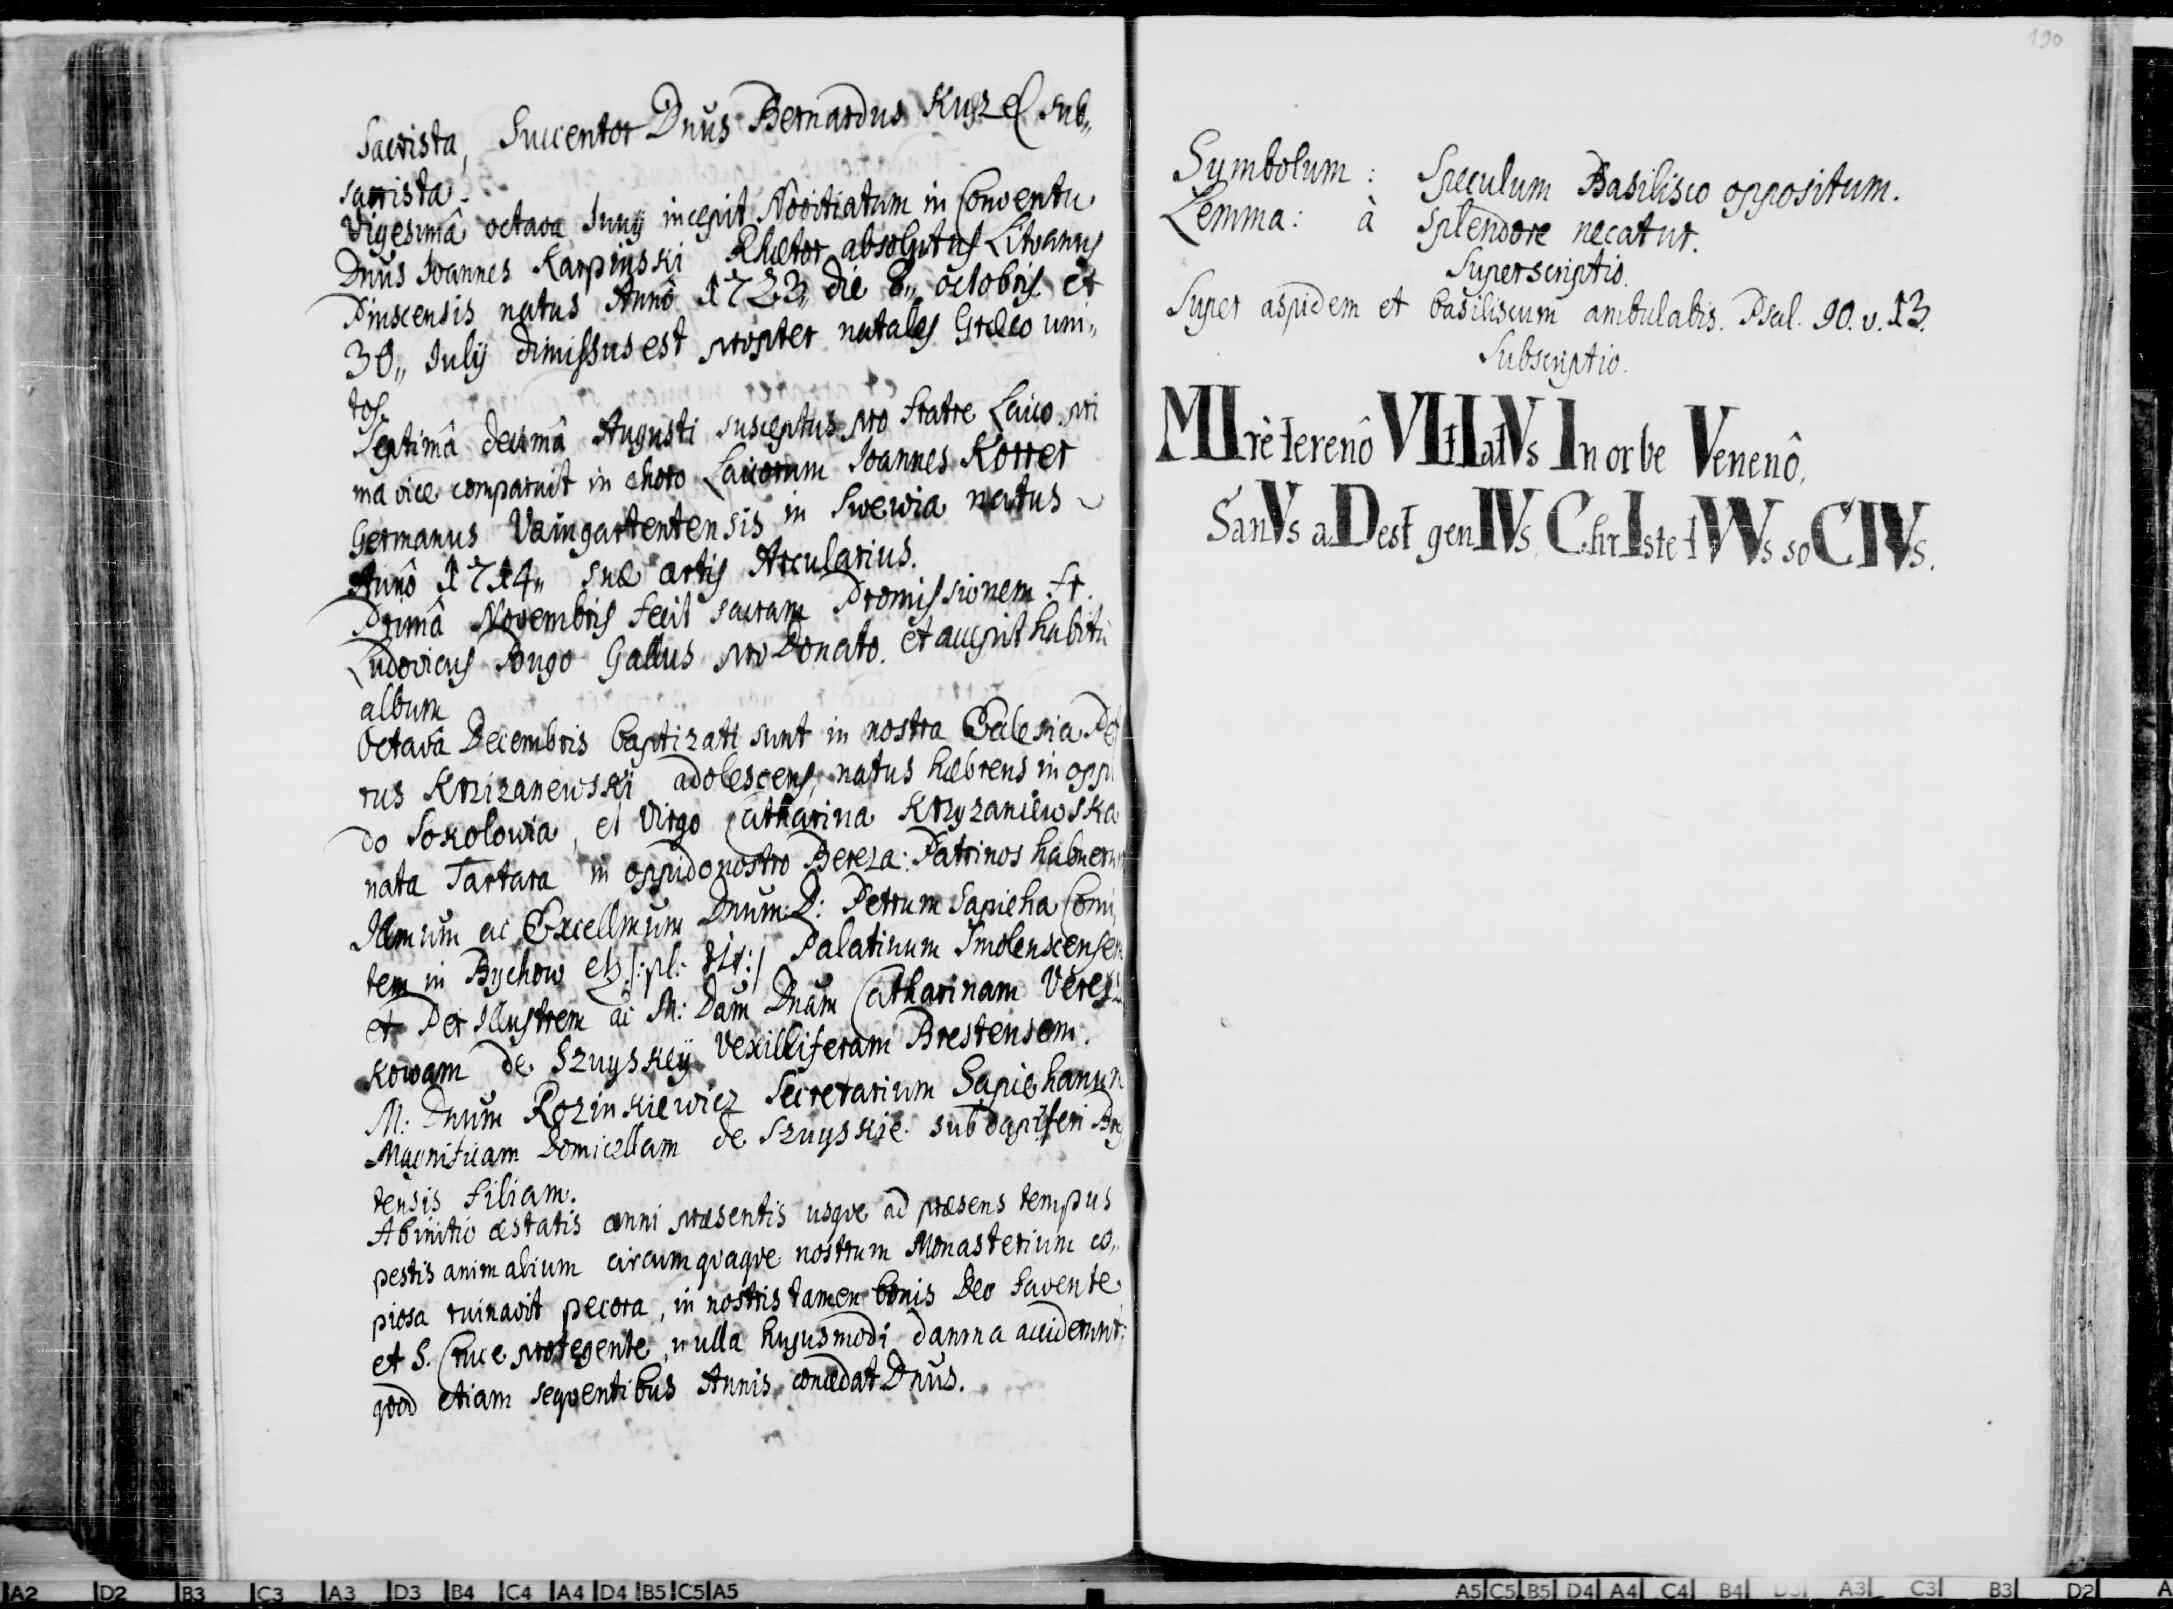 Sacrista, Succentor Dnus Bernardus Kuszel sub„
sacrista.
Vigesimâ octava Junij incepit Novitiatum in Conventu
Dnus Joannes Karpinski Rhetor absolutus Litvanus
Pinscensis natus Annô 1723„ die 8„ octobris et
30„ Julij dimissus est propter natales Græco uni„
tos.
Septimâ decimâ Augusti susceptus pro Fratre Laico pri
ma vice comparuit in choro Laicorum Joannes Korrer
Germanus Vaingartentensis in Swewia natus
Annô 1714„ suæ artis Arcularius.
Primâ Novembris fecit sacram Promissionem fr.
Ludovicus Pongo Gallus pro Donato. et accepit habitũ
album
Octavâ Decembris baptizati sunt in nostra Ecclesia Pet
rus Krzizanewski adolescens, natus hæbreus in oppi
do Sokolowia, et Virgo Catharina Krzyzaniewska
nata Tartara in oppido nostro Bereza: Patrinos habuerunt
Illmum ac Excellmum Dnum D: Petrum Sapieha Comi„
tem in Bychow etc /:pl: tit:/ Palatinum Smolenscensem
et Per Illustrem ac M: Dam Dnam Catharinam Veresz
kowam de Szuyskey Vexilliferam Brestensem.
M: Dnum Rozinkiewicz Secretarium Sapiehanum
Magnificam Domicellam de Szuyskie subdapiferi Bres
tensis filiam.
Ab initio æstatis anni præsentis usqve ad præsens tempus
pestis animalium circumqvaqve nostrum Monasterium co„
piosa ruinavit pecora, in nostris tamen bonis Deo favente
et S. Cruce protegente, nulla hujusmodi damna acciderunt;
qvod etiam seqventibus Annis concedat Dnus.
190
Symbolum: Speculum Basilisco oppositum.
Lemma: à splendore necatur.
Superscriptio.
Super aspidem et basiliscum ambulabis. Psal. 90. v. 13.
Subscriptio.
MIIrè terenô VItIatVs In orbe Venenô,
SanVs aDest genIVs, ChrIste tVVs soCIVs.